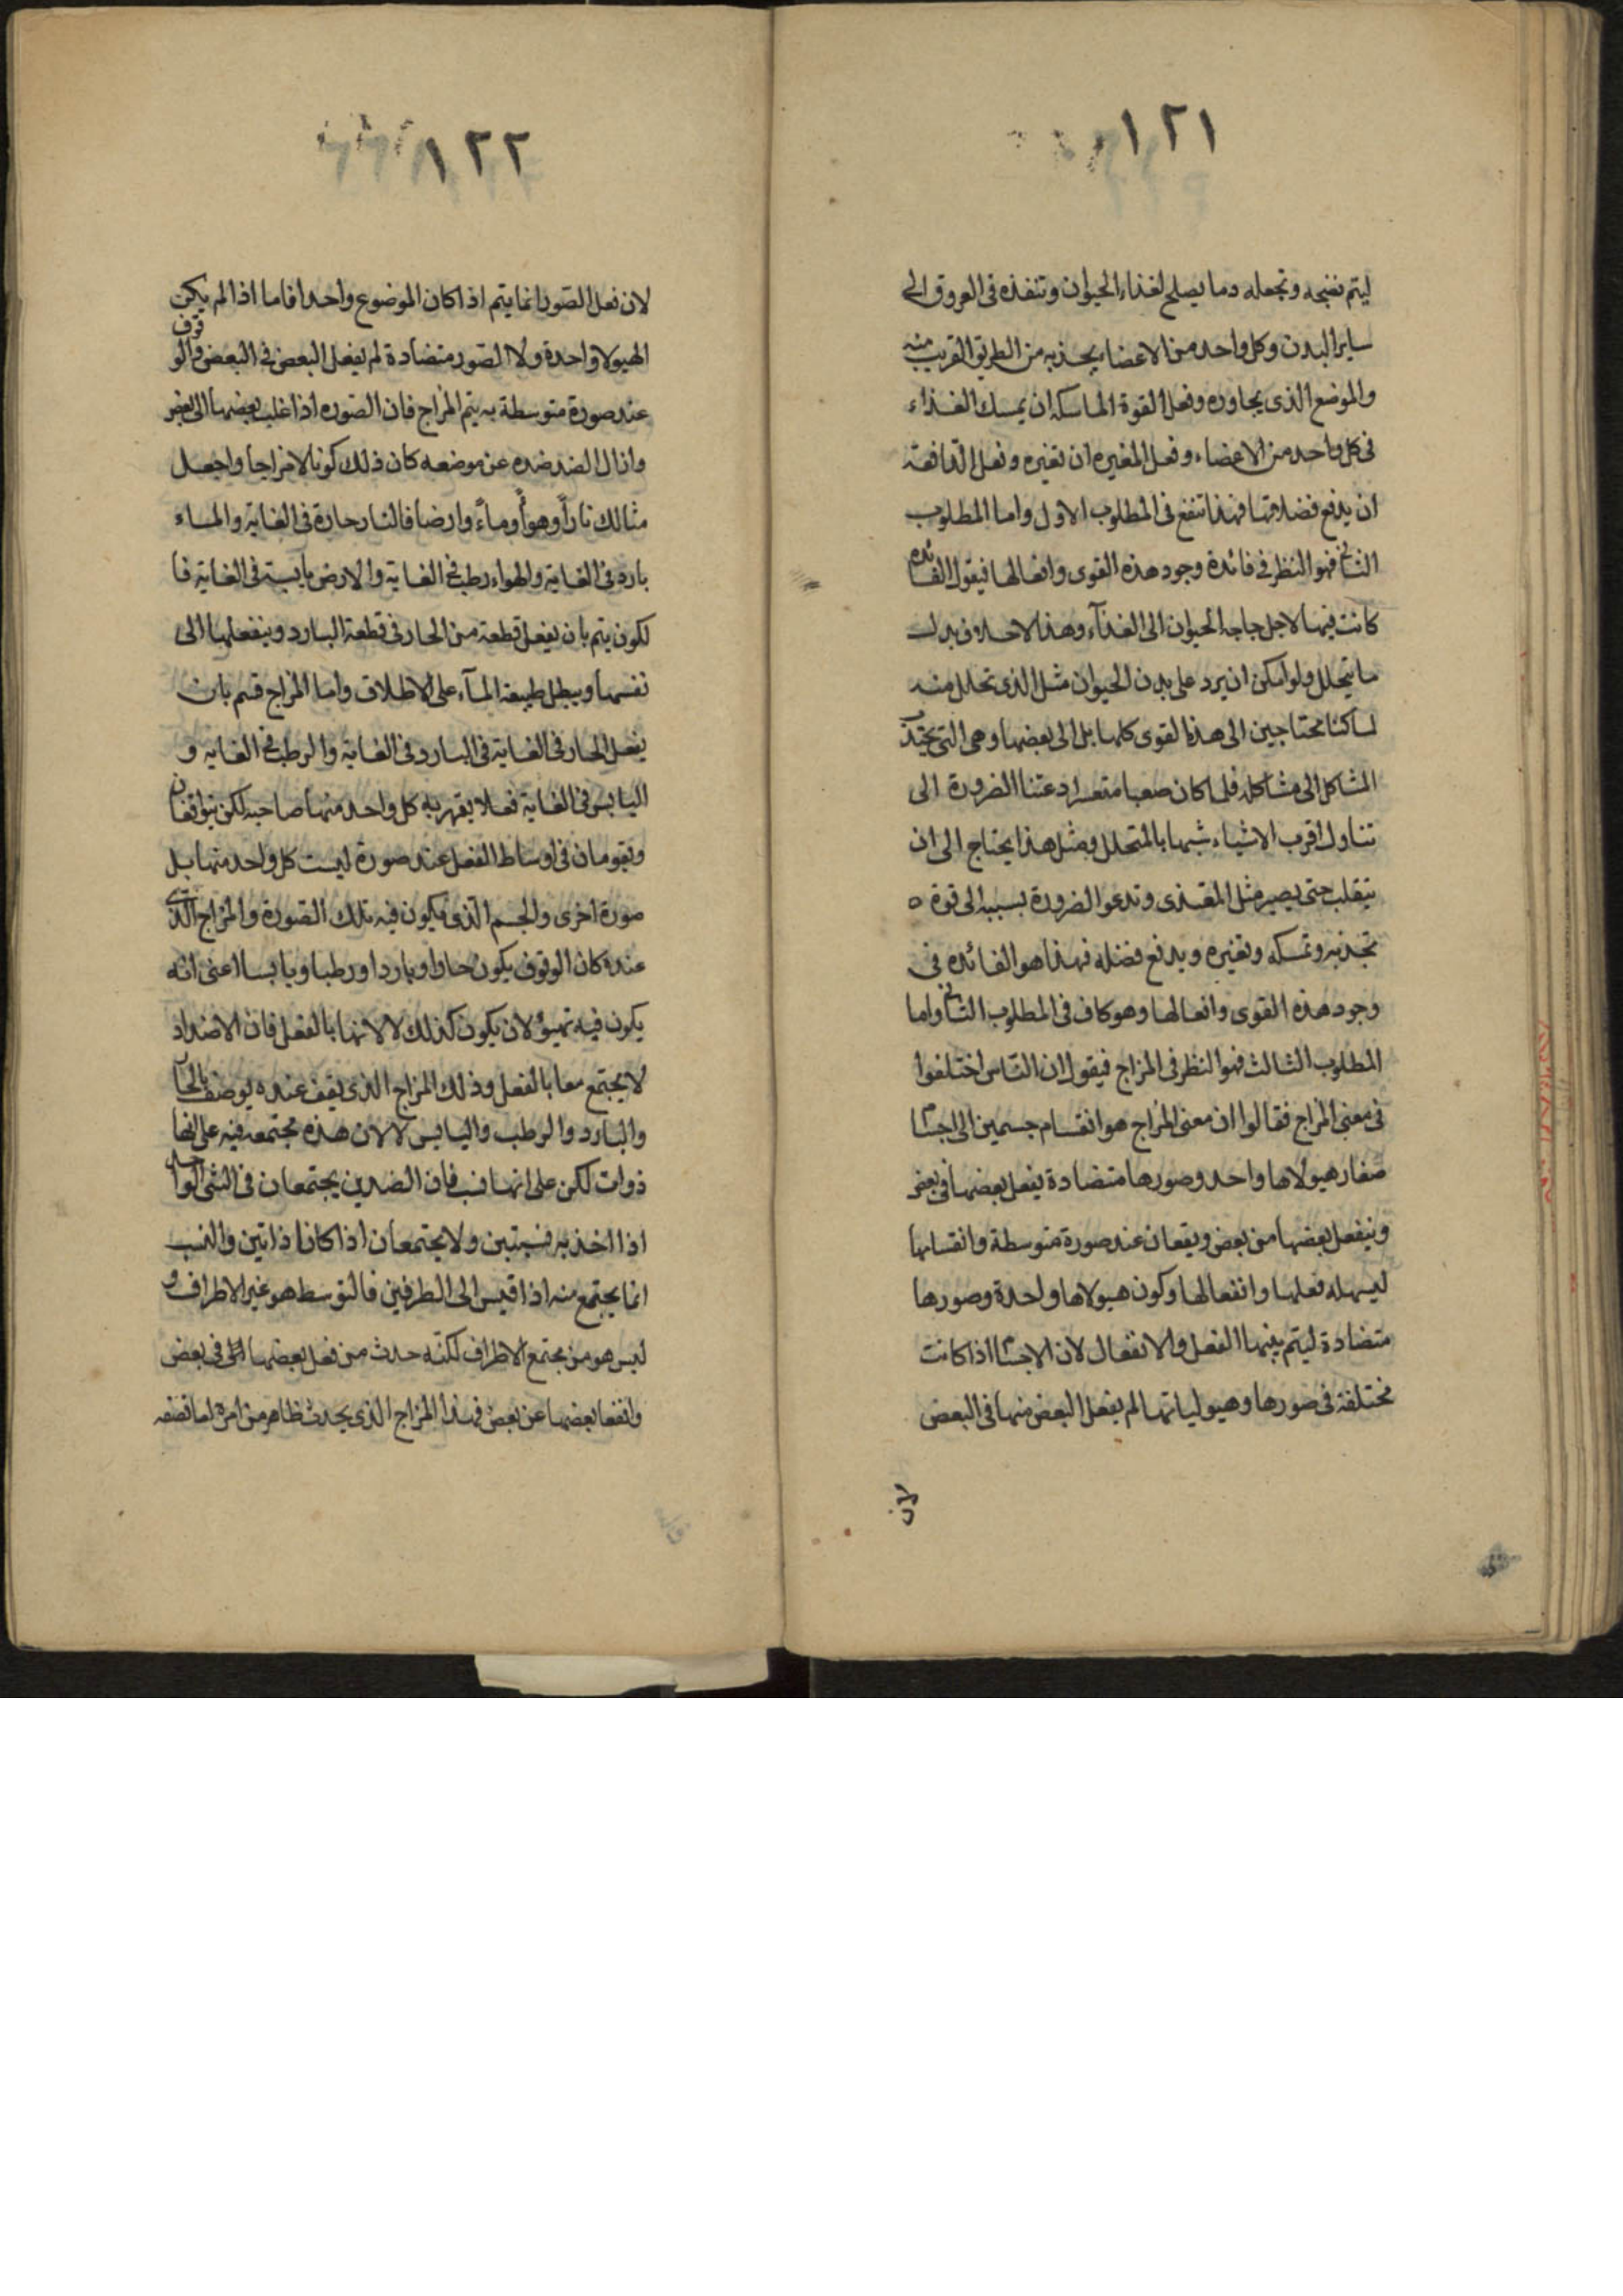 ١٢١
ليتم نضجه وتجعله دما يصلح لغذاء الحيوان وتنفذه فى العروق الى
ساير البدن وكل واحد من الاعضاء يجذبه من الطريق القريب منه
والموضع الذى يجاوره وفعل القوة الماسكه ان يمسك الغذاء
فى كل واحد من الاعضاء وفعل المغيره ان تغيره وفعل الدافعة
ان يدفع فضلاتها فهذا تنفع فى المطلوب الاول واما المطلوب
الثانى فهو النظر فى فائدة وجود هذه القوى وافعالها فيقول الفائده
كانت فيها لاجل حاجه الحيوان الى الغذآء وهذا لاخلاف بدل
ما يتحلل ولو امكن ان يرد على بدن الحيوان مثل الذى تحلل منه
لما كنا محتاجين الى هذه القوى كلها بل الى بعضها وهى التى تجذب
المشاكل الى مشاكله فلما كان صعبا متعسرا دعتنا الضرورة الى
تناول اقرب الاشياء شبها بالمتحلل ومثل هذا يحتاج الى ان
ينقلب حتى يصير مثل المغتذى وتدعو الضرورة بسببه الى قوة ه
تجذبه وتمسكه وتغيره ويدفع فضله فهذا هو الفائده فى
وجود هذه القوى وافعالها وهو كاف فى المطلوب الثانى واما
المطلوب الثالث فهو النظر فى المزاج فيقول ان الناس اختلفوا
فى معنى المزاج فقالوا ان معنى المزاج هو انقسام جسمين الى اجسام
صغار هيولاها واحد وصورها متضادة يفعل بعضها فى بعض
وينفعل بعضها من بعض ويقعان عند صورة متوسطة وانقسامها
ليسهله فعلها وانفعالها وكون هيولاها واحدة وصورها
متضادة ليتم بينها الفعل والانفعال لان الاجسام اذا كانت
مختلفة فى صورها وهيولياتها لم يفعل البعض منها فى البعض
لان
١٢٢
لان فعل الصور انما يتم اذا كان الموضوع واحدا فاما اذا لم يكن
الهيولا واحدة ولا الصور متضادة لم يفعل البعض فى البعض والوقوف
عند صورة متوسطة به يتم المزاج فان الصوره اذا غلب بعضها الى بعض
وازال الضد ضده عن موضعه كان ذلك كونا لا مزاجا واجعل
مثالك ناراً وهوأً ومأً وارضا فالنار حارة فى الغاية والماء
بارد فى الغاية والهواء رطب فى الغاية والارض يابسة فى الغاية فا
لكون يتم بان يفعل قطعة من الحار فى قطعة البارد وينفعلها الى
نفسها ويبطل طبيعة المآء على الاطلاق واما المزاج فتم بان
يفعل الحار فى الغاية فى البارد فى الغاية والرطب فى الغاية و
اليابس فى الغاية فعلا يقهر به كل واحد منها صاحبه لكن يتواقفان
ويقومان فى اوساط الفعل عند صورة ليست كل واحد منهما بل
صورة اخرى والجسم الذى يكون فيه تلك الصورة والمزاج الذى
عنده كان الوقوف يكون حارا وباردا ورطبا ويابسا اعنى انه
يكون فيه تهيؤ لان يكون كذلك لا لانها بالفعل فان الاضداد
لا يجتمع معا بالفعل وذلك المزاج الذى يقف عنده يوصف بالحار
والبارد والرطب واليابس لا لان هذه مجتمعه فيه على انها
ذوات لكن على انها نسب فان الضدين يجتمعان فى الشى الواحد
اذا اخذ به نسبتين ولا يجتمعان اذا كانا ذاتين والنسب
انما يجتمع منه اذا قيس الى الطرفين فالتوسط هو غير الاطراف و
ليس هو من مجتمع الاطراف لكنه حدث من فعل بعضها فى بعض
وانفعا بعضها عن بعض فهذا المزاج الذى يحدث ظاهر من امره